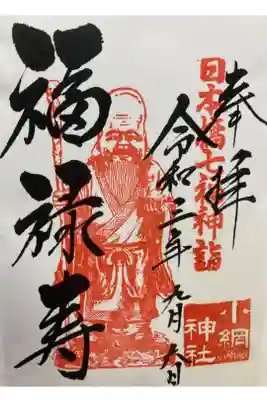 奉拝
日本橋七福神詣
令和二年九月六日
福禄寿
小網
神社